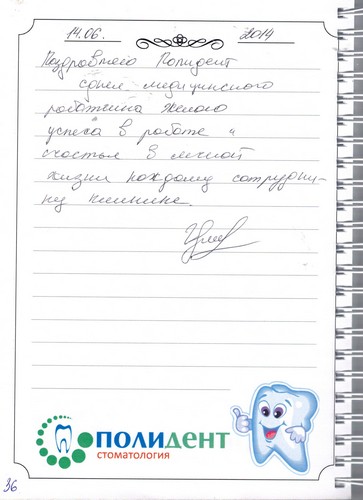 14.06. 2014
Поздравляю Полидент
с днем медицинского
работника желаю
успеха в работе и
счастья в личной
жизни каждому сотрудни-
ку клиники.
ПОЛИДЕНТ
СТОМАТОЛОГИЯ
36